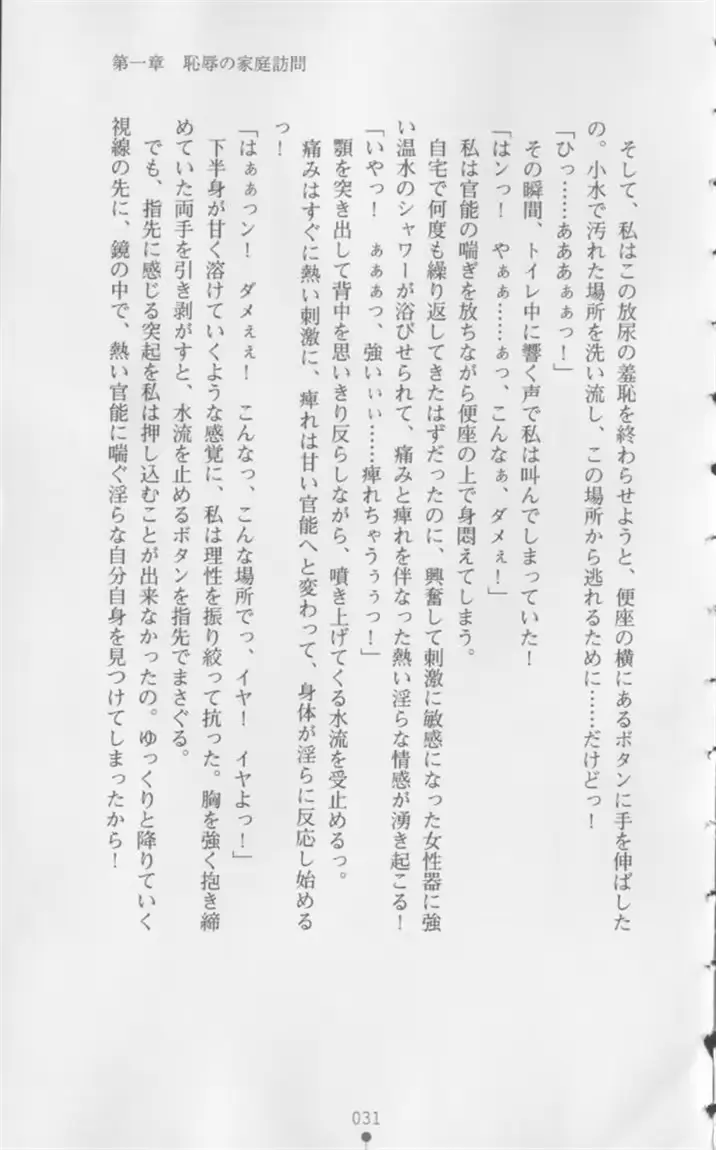 第一章　恥辱の家庭訪問
　そして、私はこの放尿の羞恥を終わらせようと、便座の横にあるボタンに手を伸ばした
の。小水で汚れた場所を洗い流し、この場所から逃れるために……だけどっ！
「ひっ……あああぁぁっ！」
　その瞬間、トイレ中に響く声で私は叫んでしまっていた！
「はンっ！　やぁぁ……ぁっ、こんなぁ、ダメぇ！」
　私は官能の喘ぎを放ちながら便座の上で身悶えてしまう。
　自宅で何度も繰り返してきたはずだったのに、興奮して刺激に敏感になった女性器に強
い温水のシャワーが浴びせられて、痛みと痺れを伴なった熱い淫らな情感が湧き起こる！
「いやっ！　ぁぁぁっ、強いぃぃ……痺れちゃうぅぅっ！」
　顎を突き出して背中を思いきり反らしながら、噴き上げてくる水流を受止めるっ。
　痛みはすぐに熱い刺激に、痺れは甘い官能へと変わって、身体が淫らに反応し始める
っ！
「はぁぁっン！　ダメぇぇ！　こんなっ、こんな場所でっ、イヤ！　イヤよっ！」
　下半身が甘く溶けていくような感覚に、私は理性を振り絞って抗った。胸を強く抱き締
めていた両手を引き剥がすと、水流を止めるボタンを指先でまさぐる。
　でも、指先に感じる突起を私は押し込むことが出来なかったの。ゆっくりと降りていく
視線の先に、鏡の中で、熱い官能に喘ぐ淫らな自分自身を見つけてしまったから！
031